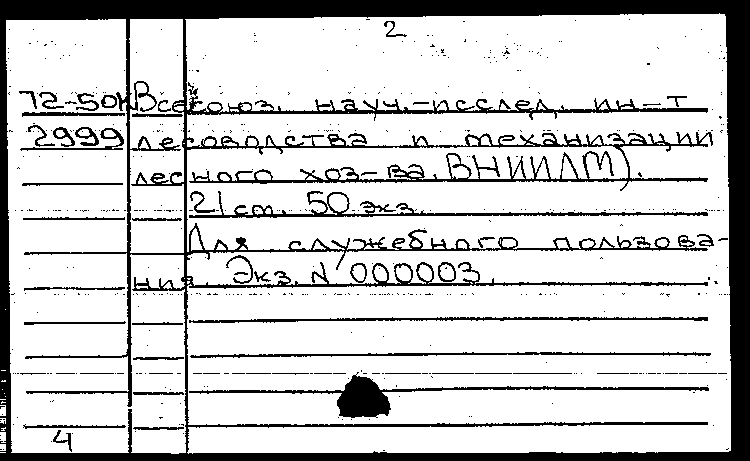 2
72-50К Всесоюз. науч.-исслед. ин-т
2999 лесоводства и механизации
лесного хоз-ва. ВНИИЛМ).
21 ст. 50 экз.
Для служебного пользова-
ния. Экз. N 000003.
4